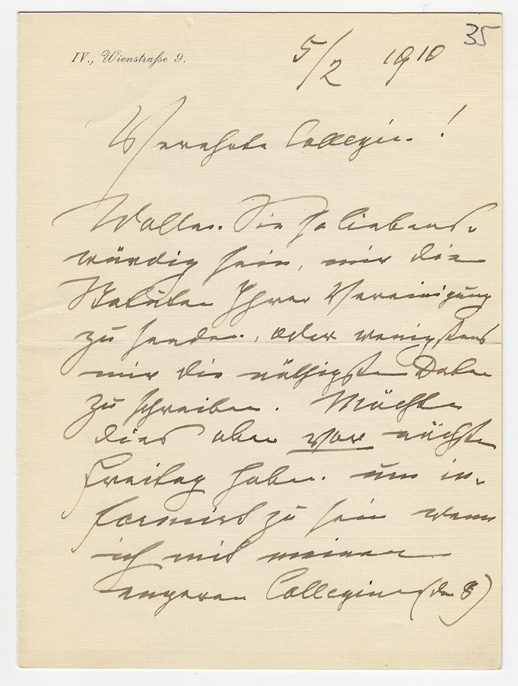 35
IV., Wienstraße 9.
5/2 1910
Verehrte Collegin!
Wollen Sie so liebens-
würdig sein, mir die
Statuten Ihrer Vereinigung
zu senden, oder wenigstens
mir die nöthigsten Daten
zu schreiben. Möchte
dies aber vor nächsten
Freitag haben. um in-
formirt zu sein wenn
ich mit meinen
engeren Colleginnen (den 8)